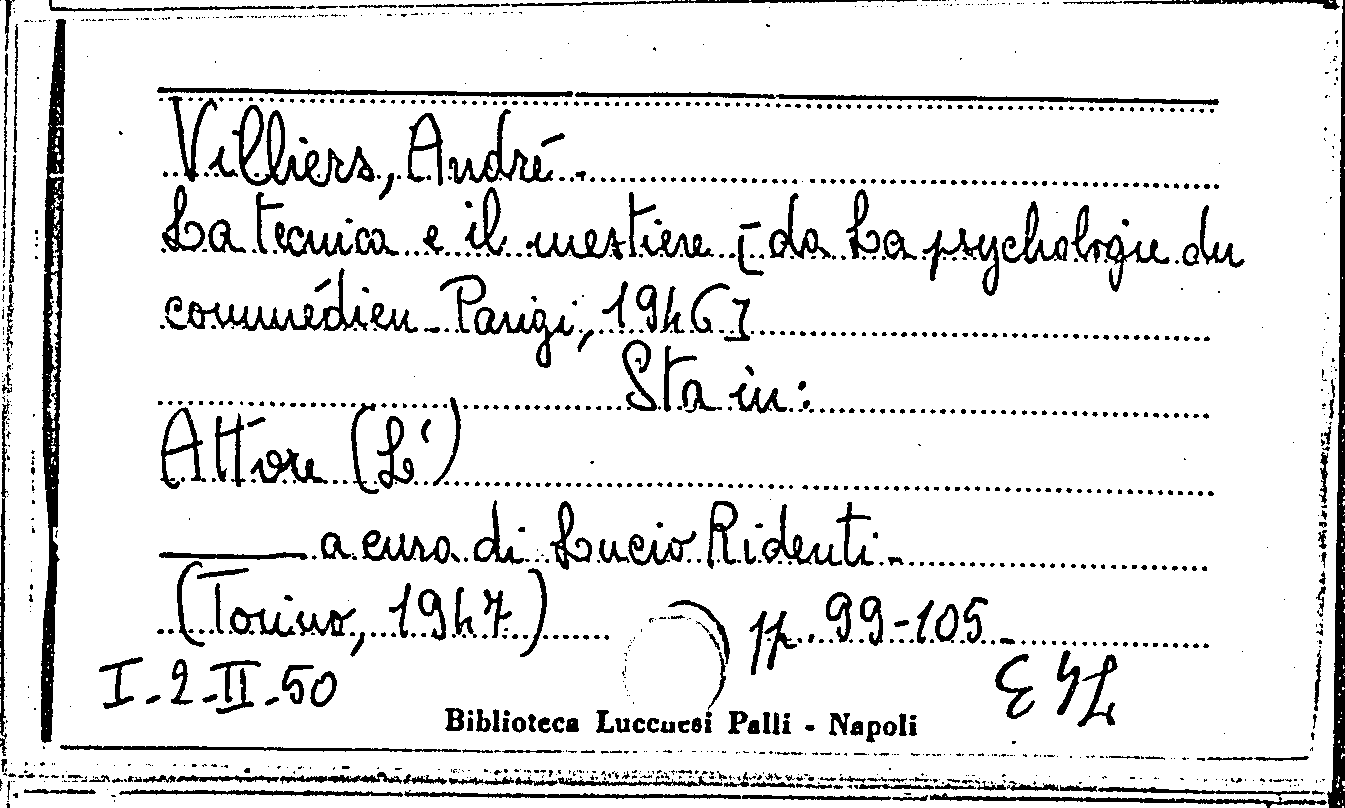 Villiers, André -
La tecnica e il mestiere [da La psychologie du
commédien - Parigi, 1946]
Sta in:
Attore (L')
a cura di Lucio Ridenti -
(Torino, 1947) pp. 99-105 -
I - 2 - II - 50
Biblioteca Lucchesi Palli - Napoli